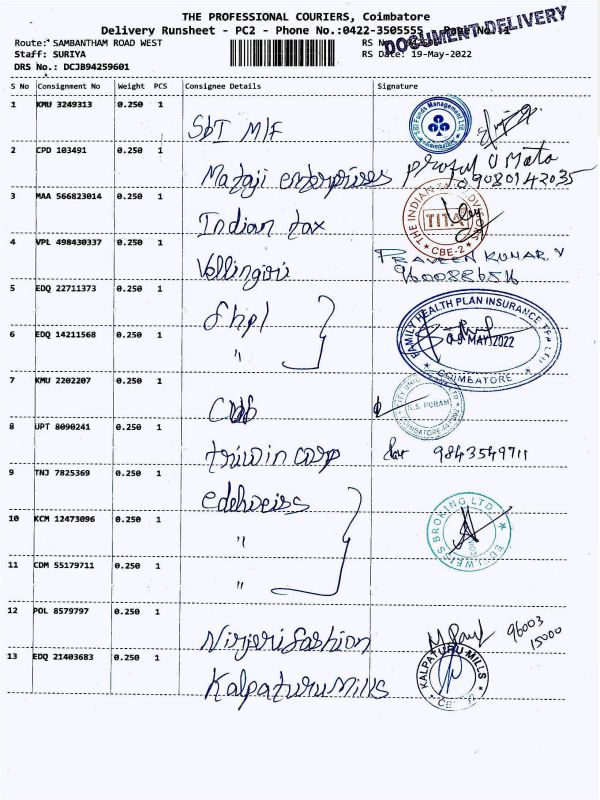 THE PROFESSIONAL COURIERS, Coimbatore
Delivery Runsheet - PC2 - Phone No.:0422-3505555
DOCUMENT DELIVERY
Route: SAMBANTHAM ROAD WEST
Staff: SURIYA RS Date: 19-May-2022
DRS No.: DCJB94259601
S No Consignment No Weight PCS Consignee Details Signature
1 KMU 3249313 0.250 1
SbI M/F
SBI Funds Management Ltd.
2 CPD 103491 0.250 1
Mataji enterprises
9080142035
3 MAA 566823014 0.250 1
Indian tax
THE INDIAN TITA CBE-2
4 VPL 498430337 0.250 1
Vellingiri
PRAVEEN KUMAR. V
9600886516
5 EDQ 22711373 0.250 1
fhpl
FAMILY HEALTH PLAN INSURANCE TPA LTD
MAY 2022
COIMBATORE
6 EDQ 14211568 0.250 1
"
7 KMU 2202207 0.250 1
CUB
R.S. PURAM
8 UPT 8090241 0.250 1
triwin corp
9843549711
9 TNJ 7825369 0.250 1
edelweiss
EDELWEISS BROKING LTD
10 KCM 12473096 0.250 1
"
11 CDM 55179711 0.250 1
"
12 POL 8579797 0.250 1
Nirjeri fashion
96003
15000
13 EDQ 21403683 0.250 1
Kalpaturu Mills
KALPATURU MILLS